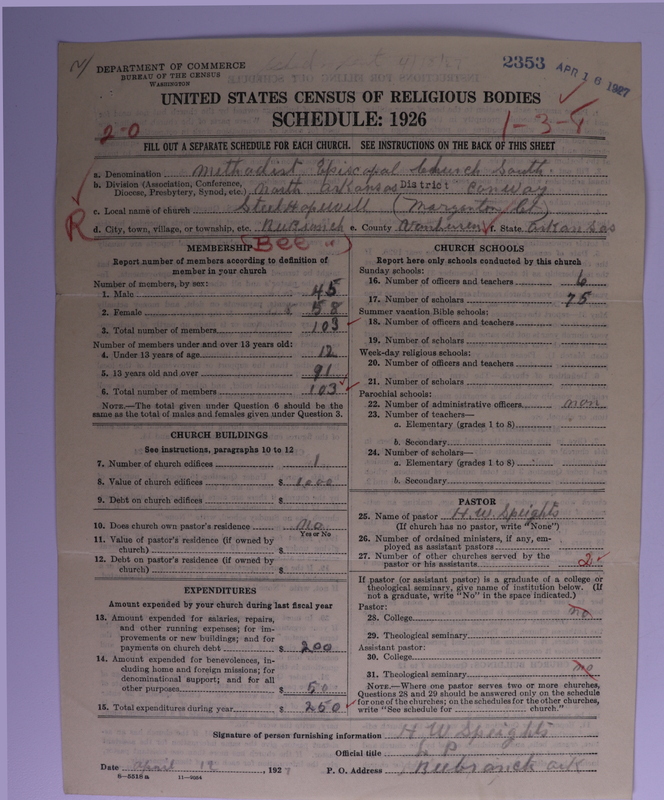 DEPARTMENT OF COMMERCE
BUREAU OF THE CENSUS
WASHINGTON
2353
APR 16 1927
UNITED STATES CENSUS OF RELIGIOUS BODIES
SCHEDULE: 1926
2-0
1-3-4
FILL OUT A SEPARATE SCHEDULE FOR EACH CHURCH. SEE INSTRUCTIONS ON THE BACK OF THIS SHEET
a. Denomination Methodist Episcopal Church South.
b. Division (Association, Conference, Diocese, Presbytery, Synod, etc.) North Arkansas District Conway
c. Local name of church Steel Hopewell (Morganton Ct)
R
d. City, town, village, or township, etc. BeeBranch e. County Vanburen f. State Arkansas
(Bee ")
MEMBERSHIP
Report number of members according to definition of
member in your church
Number of members, by sex:
1. Male 45
2. Female 58
3. Total number of members 103
Number of members under and over 13 years old:
4. Under 13 years of age 12
5. 13 years old and over 91
6. Total number of members 103
NOTE.—The total given under Question 6 should be the
same as the total of males and females given under Question 3.
CHURCH BUILDINGS
See instructions, paragraphs 10 to 12
7. Number of church edifices 1
8. Value of church edifices $ 1,000
9. Debt on church edifices $
10. Does church own pastor's residence No
Yes or No
11. Value of pastor's residence (if owned by
church) $
12. Debt on pastor's residence (if owned by
church) $
EXPENDITURES
Amount expended by your church during last fiscal year
13. Amount expended for salaries, repairs,
and other running expenses; for im-
provements or new buildings; and for
payments on church debt $ 200
14. Amount expended for benevolences, in-
cluding home and foreign missions; for
denominational support; and for all
other purposes $ 50
15. Total expenditures during year $ 250
CHURCH SCHOOLS
Report here only schools conducted by this church
Sunday schools:
16. Number of officers and teachers 6
17. Number of scholars 75
Summer vacation Bible schools:
18. Number of officers and teachers
19. Number of scholars
Week-day religious schools:
20. Number of officers and teachers
21. Number of scholars
Parochial schools:
22. Number of administrative officers non
23. Number of teachers—
a. Elementary (grades 1 to 8)
b. Secondary
24. Number of scholars—
a. Elementary (grades 1 to 8)
b. Secondary
PASTOR
25. Name of pastor H. W. Speights
(If church has no pastor, write "None")
26. Number of ordained ministers, if any, em-
ployed as assistant pastors
27. Number of other churches served by the
pastor or his assistants 2
If pastor (or assistant pastor) is a graduate of a college or
theological seminary, give name of institution below. (If
not a graduate, write "No" in the space indicated.)
Pastor:
28. College no
29. Theological seminary
Assistant pastor:
30. College
31. Theological seminary no
NOTE.—Where one pastor serves two or more churches,
Questions 28 and 29 should be answered only on the schedule
for one of the churches; on the schedules for the other churches,
write "See schedule for church."
Signature of person furnishing information H W Speights
Official title P
Date April 12, 1927 P. O. Address Beebranch ark
6—5518a 11—9064